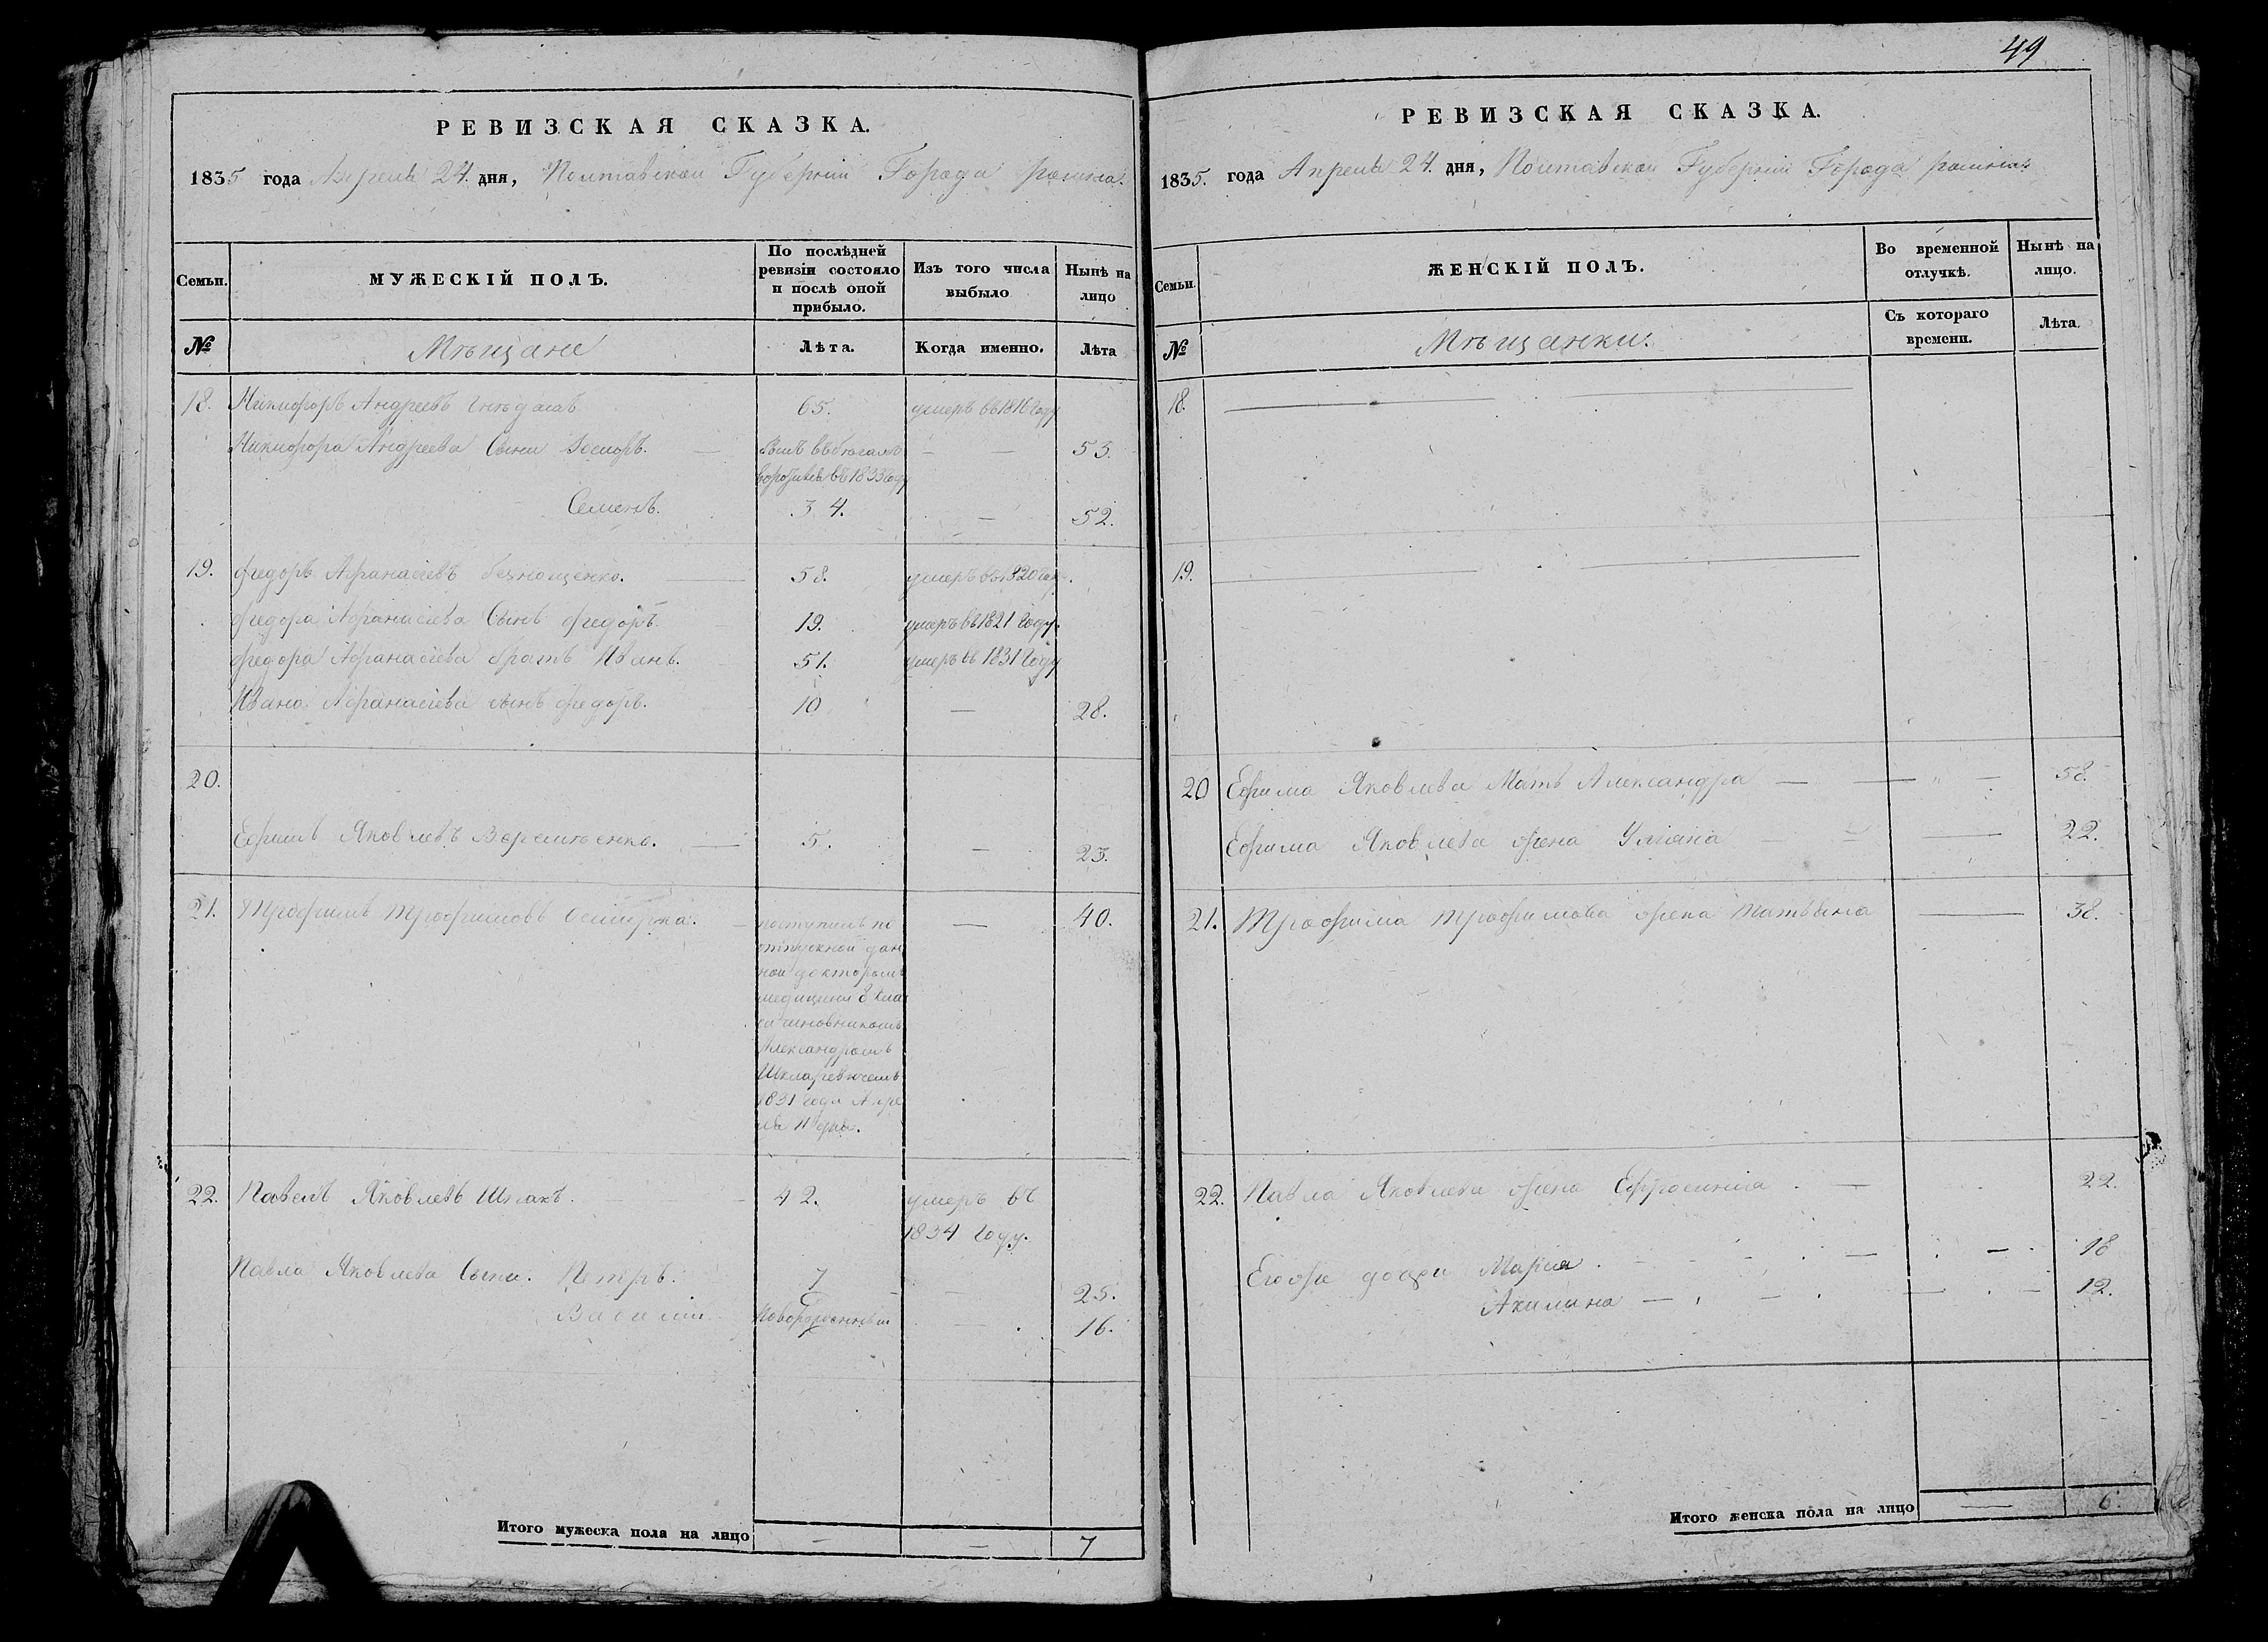 49
РЕВИЗСКАЯ СКАЗКА.
1835 года Апреля 24. дня, Полтавской Губерніи Города Ромна.
Семьи.
МУЖЕСКІЙ ПОЛЪ.
По послѣдней ревизіи состояло и послѣ оной прибыло.
Изъ того числа выбыло
Нынѣ на лицо
№
Мѣщане
Лѣта.
Когда именно.
Лѣта
18. Никифоръ Андреевъ 65. умеръ въ 1816 году
Никифора Андреева Сыни Іосифъ. — — — 53.
въ 1833 году
Семенъ. 34. — 52.
19. Федоръ Афанасіевъ 58. умеръ въ 1820 году.
Федора Афанасіева Сынъ Федоръ. 19. умеръ въ 1821 году.
Федора Афанасіева братъ Иванъ. 51. умеръ въ 1831 году
Ивана Афанасіева сынъ Федоръ. 10 — 28.
20.
Ефимъ Яковлевъ Веремѣенко. 5. — 23.
21. Трофимъ Трофимовъ — 40.
поступилъ по
отпускной дан
ной докторомъ
медицини 8 кла
са чиновникомъ
Александромъ
Шкляревичемъ
1831 года Апре
ля 11 дня.
22. Павелъ Яковлевъ Шпакъ. 42. умеръ въ
1834 году.
Павла Яковлева Сыни. Петръ. 7 — 25.
Василій Новорожденный — 16.
Итого мужеска пола на лицо — — 7
РЕВИЗСКАЯ СКАЗКА.
1835. года Апреля 24. дня, Полтавской Губерніи Города Ромна.
Семьи.
ЖЕНСКІЙ ПОЛЪ.
Во временной отлучкѣ.
Нынѣ на лицо.
№
Мѣщанки.
Съ котораго времени.
Лѣта.
18.
19.
20 Ефима Яковлева Мать Александра — — 58.
Ефима Яковлева жена Уліяна — — 22.
21. Трофима Трофимова жена Татьяна — 38.
22. Павла Яковлева жена Ефросинія. — 22.
Егоже дочери Марія. — 18
Акилина — — 12.
Итого женска пола на лицо — 6.